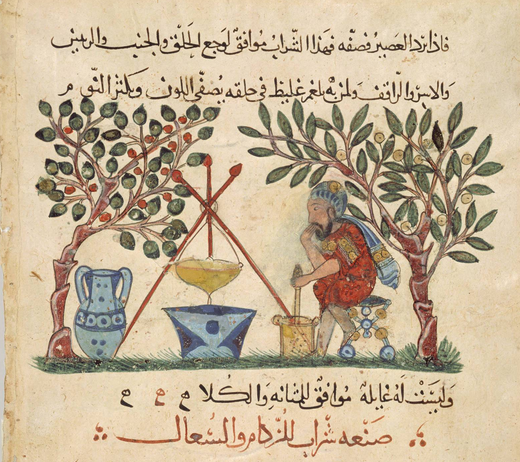 فاذا برد العصير فصفه فهذا الشراب موافق لوجع الحلق والجنب والرئين
والابر والرافف ولمن به بلغم غليظ في حلقه يصفي اللون ويكثر النوم
وليست له غايلة موافق للمثانه والكلا
صنعه شراب للزكام والسعال